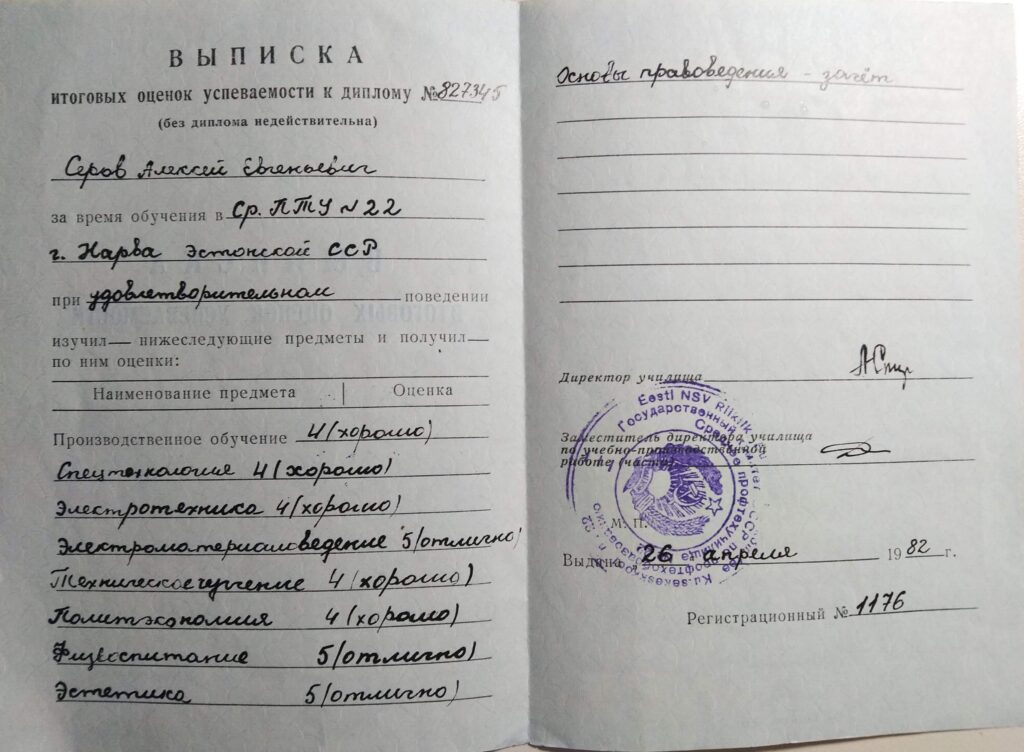 ВЫПИСКА
итоговых оценок успеваемости к диплому № 827345
(без диплома недействительна)
Серов Алексей Евгеньевич
за время обучения в Ср. ПТУ № 22
г. Нарва Эстонской ССР
при удовлетворительном поведении
изучил— нижеследующие предметы и получил—
по ним оценки:
Наименование предмета Оценка
Производственное обучение 4 (хорошо)
Спецтехнология 4 (хорошо)
Электротехника 4 (хорошо)
Электроматериаловедение 5 (отлично)
Техническое черчение 4 (хорошо)
Политэкономия 4 (хорошо)
Физвоспитание 5 (отлично)
Эстетика 5 (отлично)
Основы правоведения - зачёт
Директор училища
Заместитель директора училища
по учебно-производственной
работе (части)
Eesti NSV Riiklik
Государственный
М. П.
Выдана „26" апреля 1982 г.
Регистрационный № 1176